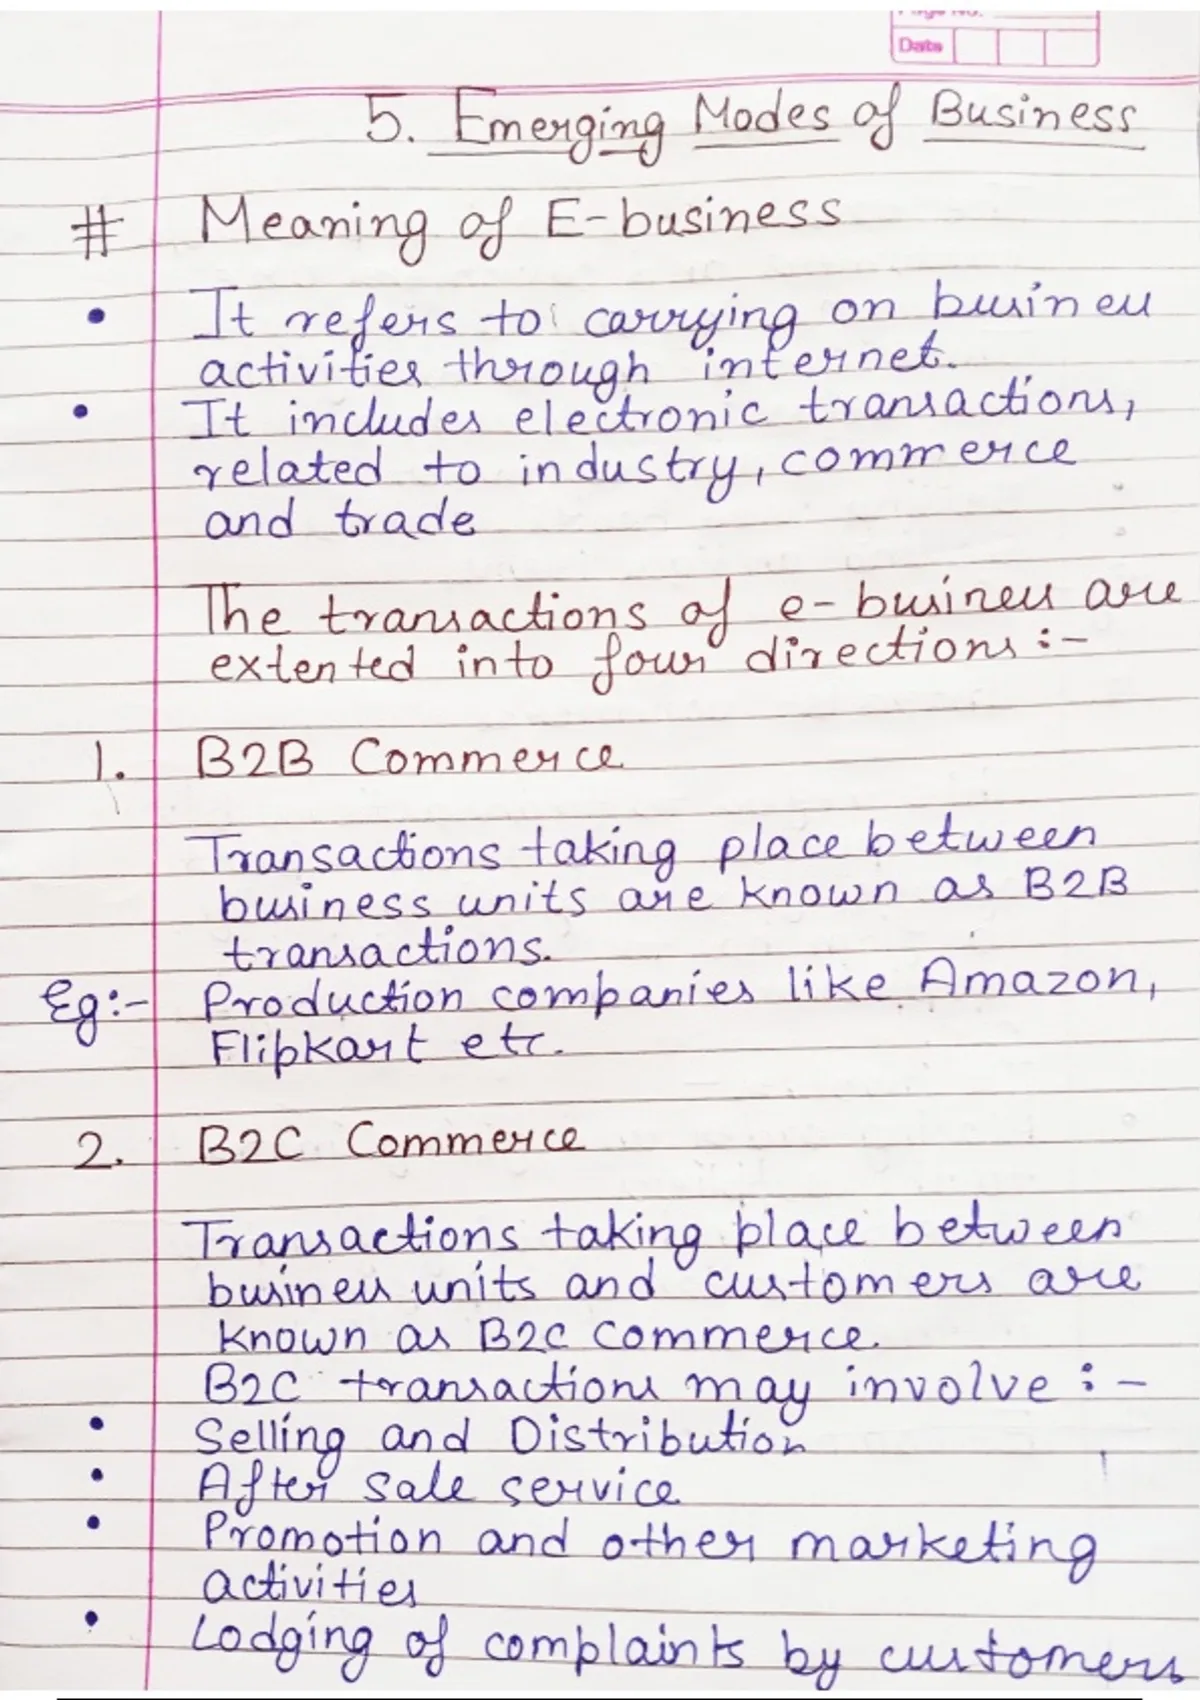 Page No.
Date
5. Emerging Modes of Business
# Meaning of E-business
• It refers to carrying on business
activities through internet.
• It includes electronic transactions,
related to industry, commerce
and trade
The transactions of e-business are
extented into four directions :-
1. B2B Commerce
Transactions taking place between
business units are known as B2B
transactions.
Eg:- Production companies like Amazon,
Flipkart etc.
2. B2C Commerce
Transactions taking place between
business units and customers are
known as B2C Commerce.
B2C transactions may involve :-
• Selling and Distribution
• After sale service
• Promotion and other marketing
activities
• Lodging of complaints by customers